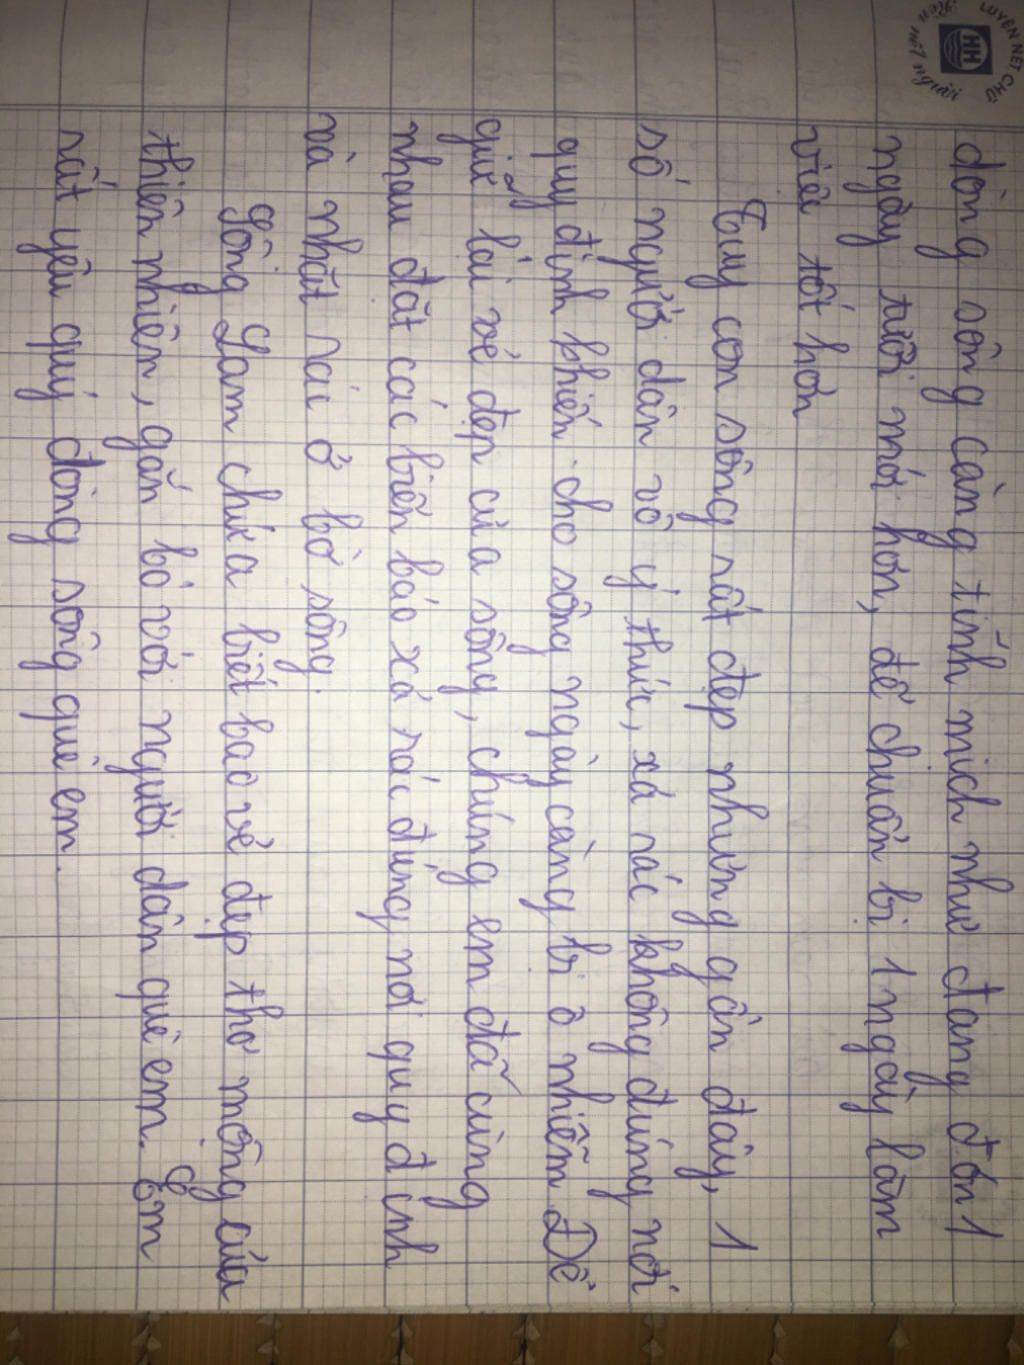 LUYỆN NÉT CHỮ
HH
Rèn nết người
dòng sông càng tĩnh mịch như đang đón 1
ngày tươi mới hơn, để chuẩn bị 1 ngày làm
việc tốt hơn
Tuy con sông rất đẹp nhưng gần đây, 1
số người dân vô ý thức, xả rác không đúng nơi
quy định khiến cho sông ngày càng bị ô nhiễm. Để
giữ lại vẻ đẹp của sông, chúng em đã cùng
nhau đặt các biển báo xả rác đúng nơi quy định
và nhặt rác ở bờ sông.
Sông Lam chứa biết bao vẻ đẹp thơ mộng của
thiên nhiên, gắn bó với người dân quê em. Em
rất yêu quý dòng sông quê em.